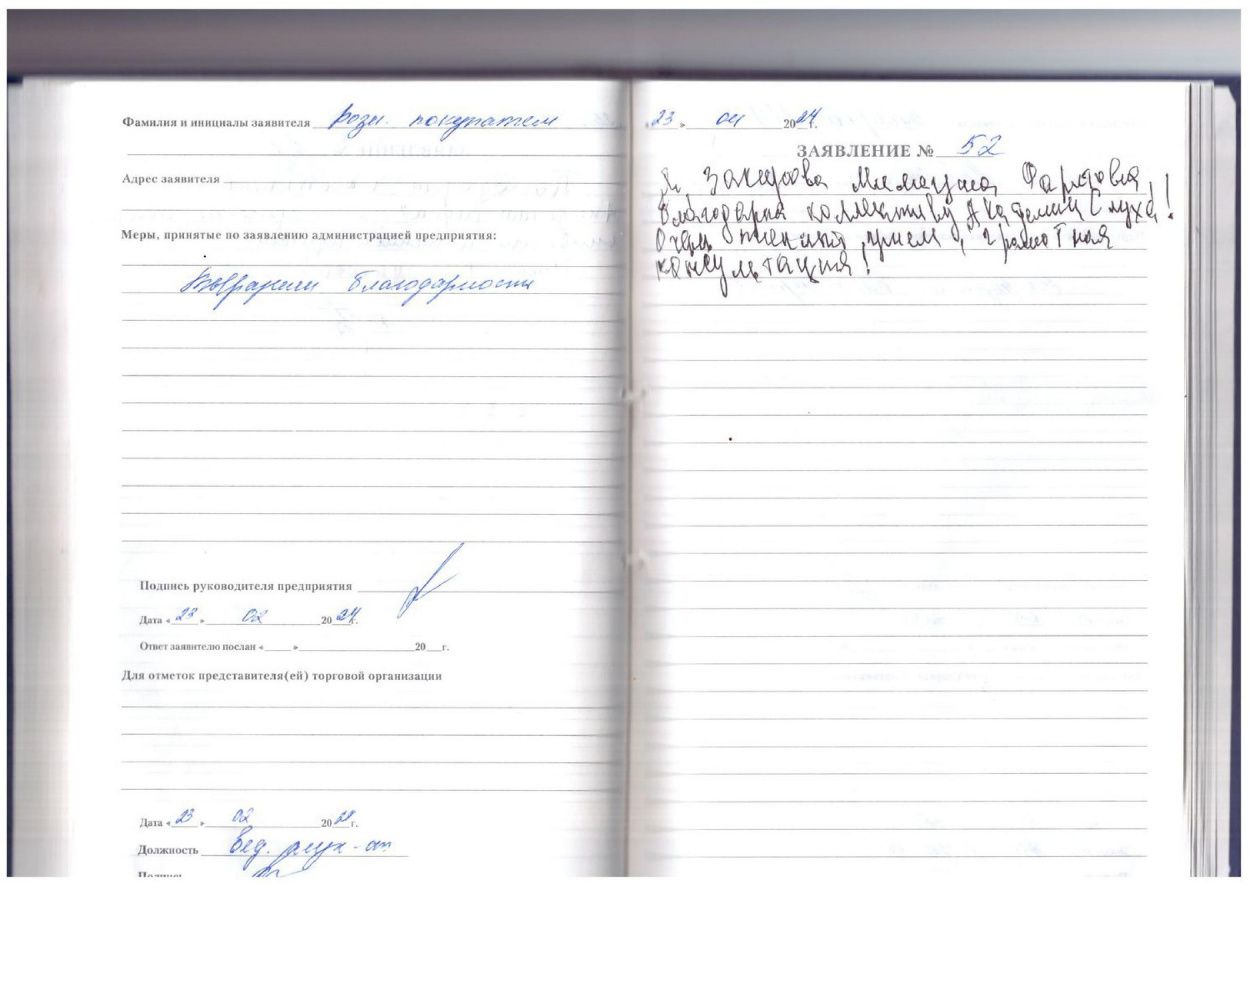 Фамилия и инициалы заявителя розн. покупатели
Адрес заявителя
Меры, принятые по заявлению администрацией предприятия:
Выразили благодарность
Подпись руководителя предприятия
Дата « 23 » 02 20 24 г.
Ответ заявителю послан « » 20 г.
Для отметок представителя(ей) торговой организации
Дата « 23 » 02 20 г.
Должность Вед.
Подпись
23 » 04 20 24 г.
ЗАЯВЛЕНИЕ № 52
Я, Закирова Фаридовна
благодарна коллективу Академии Слуха!
Очень прием, грамотная
консультация!